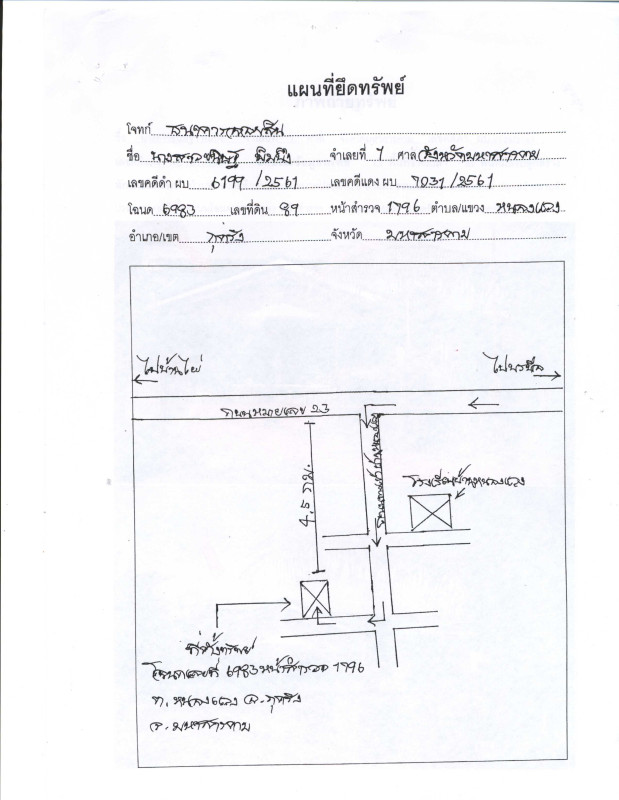 แผนที่ยึดทรัพย์
โจทก์ ธนาคารออมสิน
ชื่อ นางสาว จำเลยที่ 1 ศาล จังหวัดมหาสารคาม
เลขคดีดำ ผบ 6199 /2561 เลขคดีแดง ผบ 7031 /2561
โฉนด 6983 เลขที่ดิน 89 หน้าสำรวจ 1796 ตำบล/แขวง หนองแวง
อำเภอ/เขต กุดรัง จังหวัด มหาสารคาม
ไปบ้านไผ่
ไปบรบือ
ถนนหมายเลข 23
4.5 กม.
โรงเรียนบ้านหนองแวง
ที่ตั้งทรัพย์
โฉนดเลขที่ 6983 หน้าสำรวจ 1796
ต.หนองแวง อ.กุดรัง
จ.มหาสารคาม